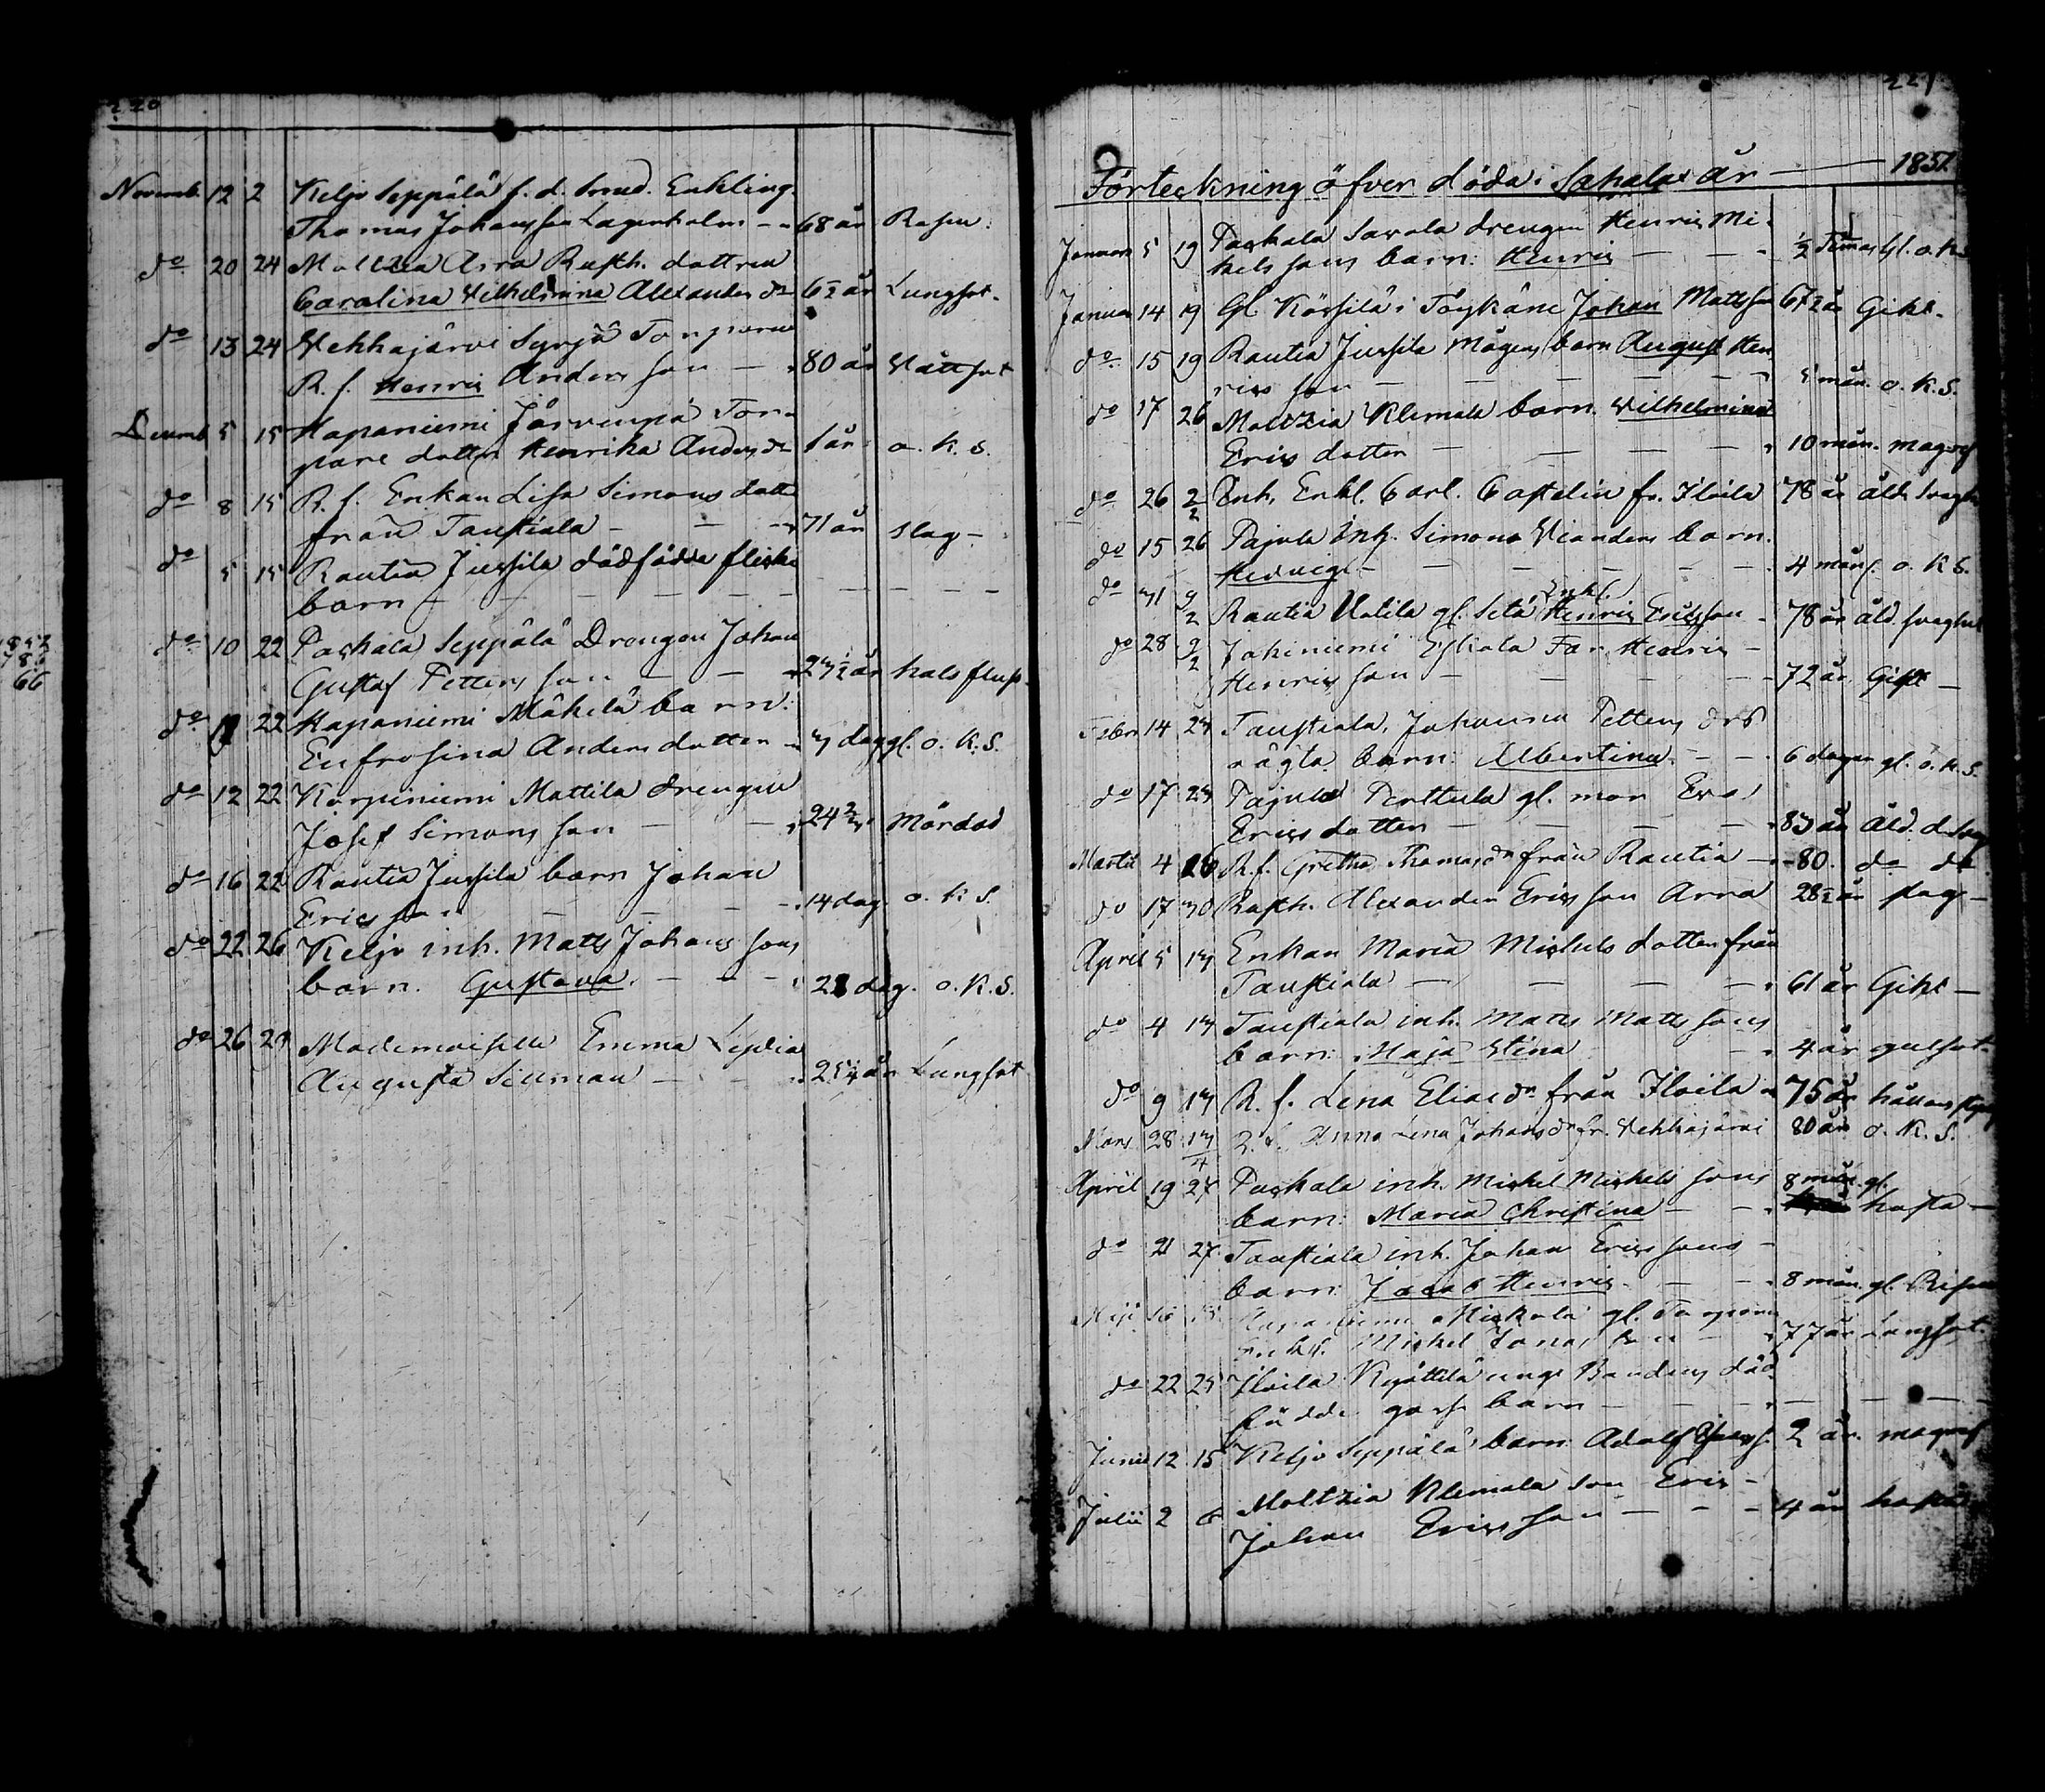 220
Novemb. 12 2 Keljo Seppälä f. d. Smed. Enkling
Thomas Johansson Lagerholm - - 68 år Rosen.
do 20 24 Moltzia Arra Rusth. dottren
Carolina Wilhelmina Alexanders dr 6½ år Lungsot.
do 13 24 Wehkajärvi Syrjä Torparen
R. f. Henric Andersson — 80 år Wattsot
Decemb 5 15 Haponiemi Järvenpä Tor-
pare dotter Henrika Anders dr 1 år o. K. S.
do 8 15 R. f. Enkan Lisa Simons dotter
från Taustiala - - - 71 år slag -
do 5 15 Rautia Jussila dödfödda flicko
barn - - - - - -
do 10 22 Paskala Seppälä Drengen Johan
Gustaf Petters son - - 23½ år halsfluss.
do 22 Haponiemi Mäkelä barn:
Eufrosina Anders dotter - 3 dag gl. o. K. S.
do 12 22 Korpiniemi Mattila drengen
Josef Simons son - - 24 Mördad
do 16 22 Rautia Jussila barn Johan
Ericsson - - - 14 dag. o. K. S.
do 22 26 Keljo inh. Matts Johans sons
barn. Gustava. - - - 21 dag. o. K. S.
do 26 29 Mademoiselle Emma Lydia
Augusta Silman - - 25¼ år Lungsot
221
Förteckning öfver döda i Sahalax år — 1851.
Januari 5 19 Paskala Savala drengen Henric Mi-
kels sons barn: Henric - - - ½ timas gl. o. K. S.
Januar 14 19 Gl. Körsilä i Töykäne Johan Mattsson 67½ år Gikt.
do 15 19 Rautia Jussila Mågens barn August Hen
rics son - - - - 5 mån. o. K. S.
do 17 26 Moltzia Klemola barn. Wilhelmina
Erics dotter - - - 10 mån. magref
do 26 2/2 Inh. Enkl. Carl. Castelin fr. Iloila 78 år åld. svaghet
do 15 26 Pajula inh. Simons Wianders barn.
Hedwig - - - - - 4 mån gl. o. K S.
do 31 9/2 Rautia Uotila gl. Sytn. Enkl. Henric Ericsson - 78 år åld. svaghet
do 28 9/2 Jokiniemi Eskola Far Henric -
Henrics son - - - - 72 år Gikt —
Febr. 14 23 Taustiala, Johanna Petters drs
oägta barn: Albertina. - - 6 dagar gl. o. K. S.
do 17 23 Pajula Perttula gl. mor Eva
Erics dotter - - - - 83 år Åld. d. Svag
Martii 4 16 R. f. Gretha Thomas dr från Rautia - - 80. do do
do 17 30 Rusth. Alexander Ericsson Arra 28½ år slag -
April 5 13 Enkan Maria Michels dotter från
Taustiala - - - - 61 år Gikt —
do 4 13 Taustiala inh. Matts Matts sons
barn: Maja Stina - 4 år gulsot.
do 9 13 R. f. Lena Elias dr från Iloila - 75 år
Mars 28 13/4 R. f. Anna Lena Johans dr fr. Wehkajärvi 80 år o. K. S.
April 19 27 Paskala inh. Michel Michels sons 8 mån gl.
barn: Maria Christina - - hosta —
do 21 27 Taustiala inh. Johan Erics sons -
barn: Jacob Henric. - - 8 mån. gl. Risen
Maji Haponiemi Mickola gl. Torparen
Enkl. Michel Jonas son - 77 år Lungsot.
do 22 25 Iloila Kyöttilä unge Bondens död
födde gosse barn - - - -
Junii 12 15 Keljo Seppälä barn: Adolf 2 år. magref
Julii 2 6 Moltzia Klemola son Eric -
Johan Ericsson - - - 4 år hosta